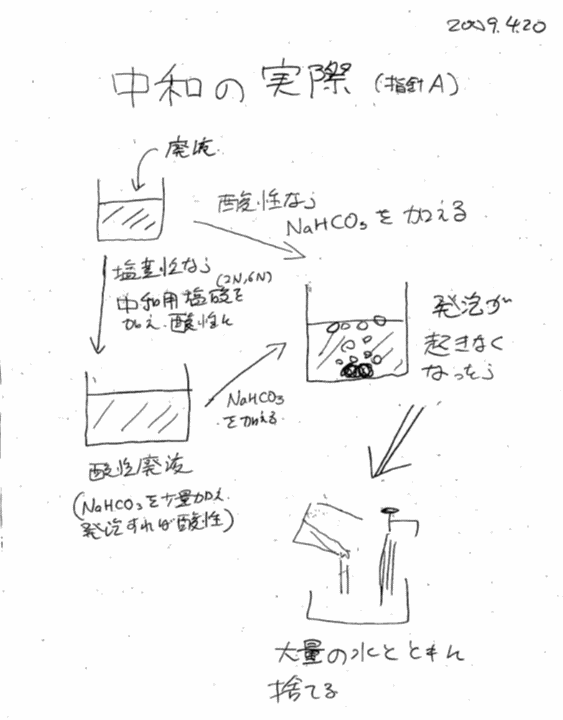 2009.4.20
中和の実際(指針A)
廃液
酸性なら
NaHCO₃を加える
塩基性なら
(2N,6N)
中和用塩酸を
加え、酸性に
発泡が
起きなく
なったら
NaHCO₃
を加える
酸性廃液
(NaHCO₃を少量加え
発泡すれば酸性)
大量の水とともに
捨てる